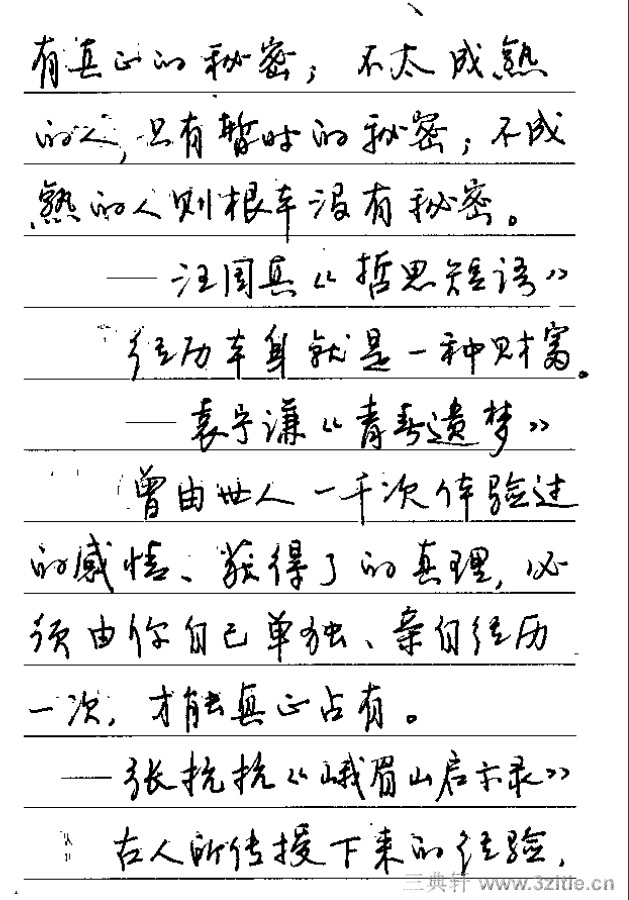 有真正的秘密；不太成熟
的人，只有暂时的秘密；不成
熟的人则根本没有秘密。
——汪国真《哲思短语》
经历本身就是一种财富。
——袁宇谦《青春遗梦》
曾由世人一千次体验过
的感情、获得了的真理，必
须由你自己单独、亲自经历
一次，才能真正占有。
——张抗抗《峨眉山启示录》
古人所传授下来的经验，
三典轩 www.3zitie.cn